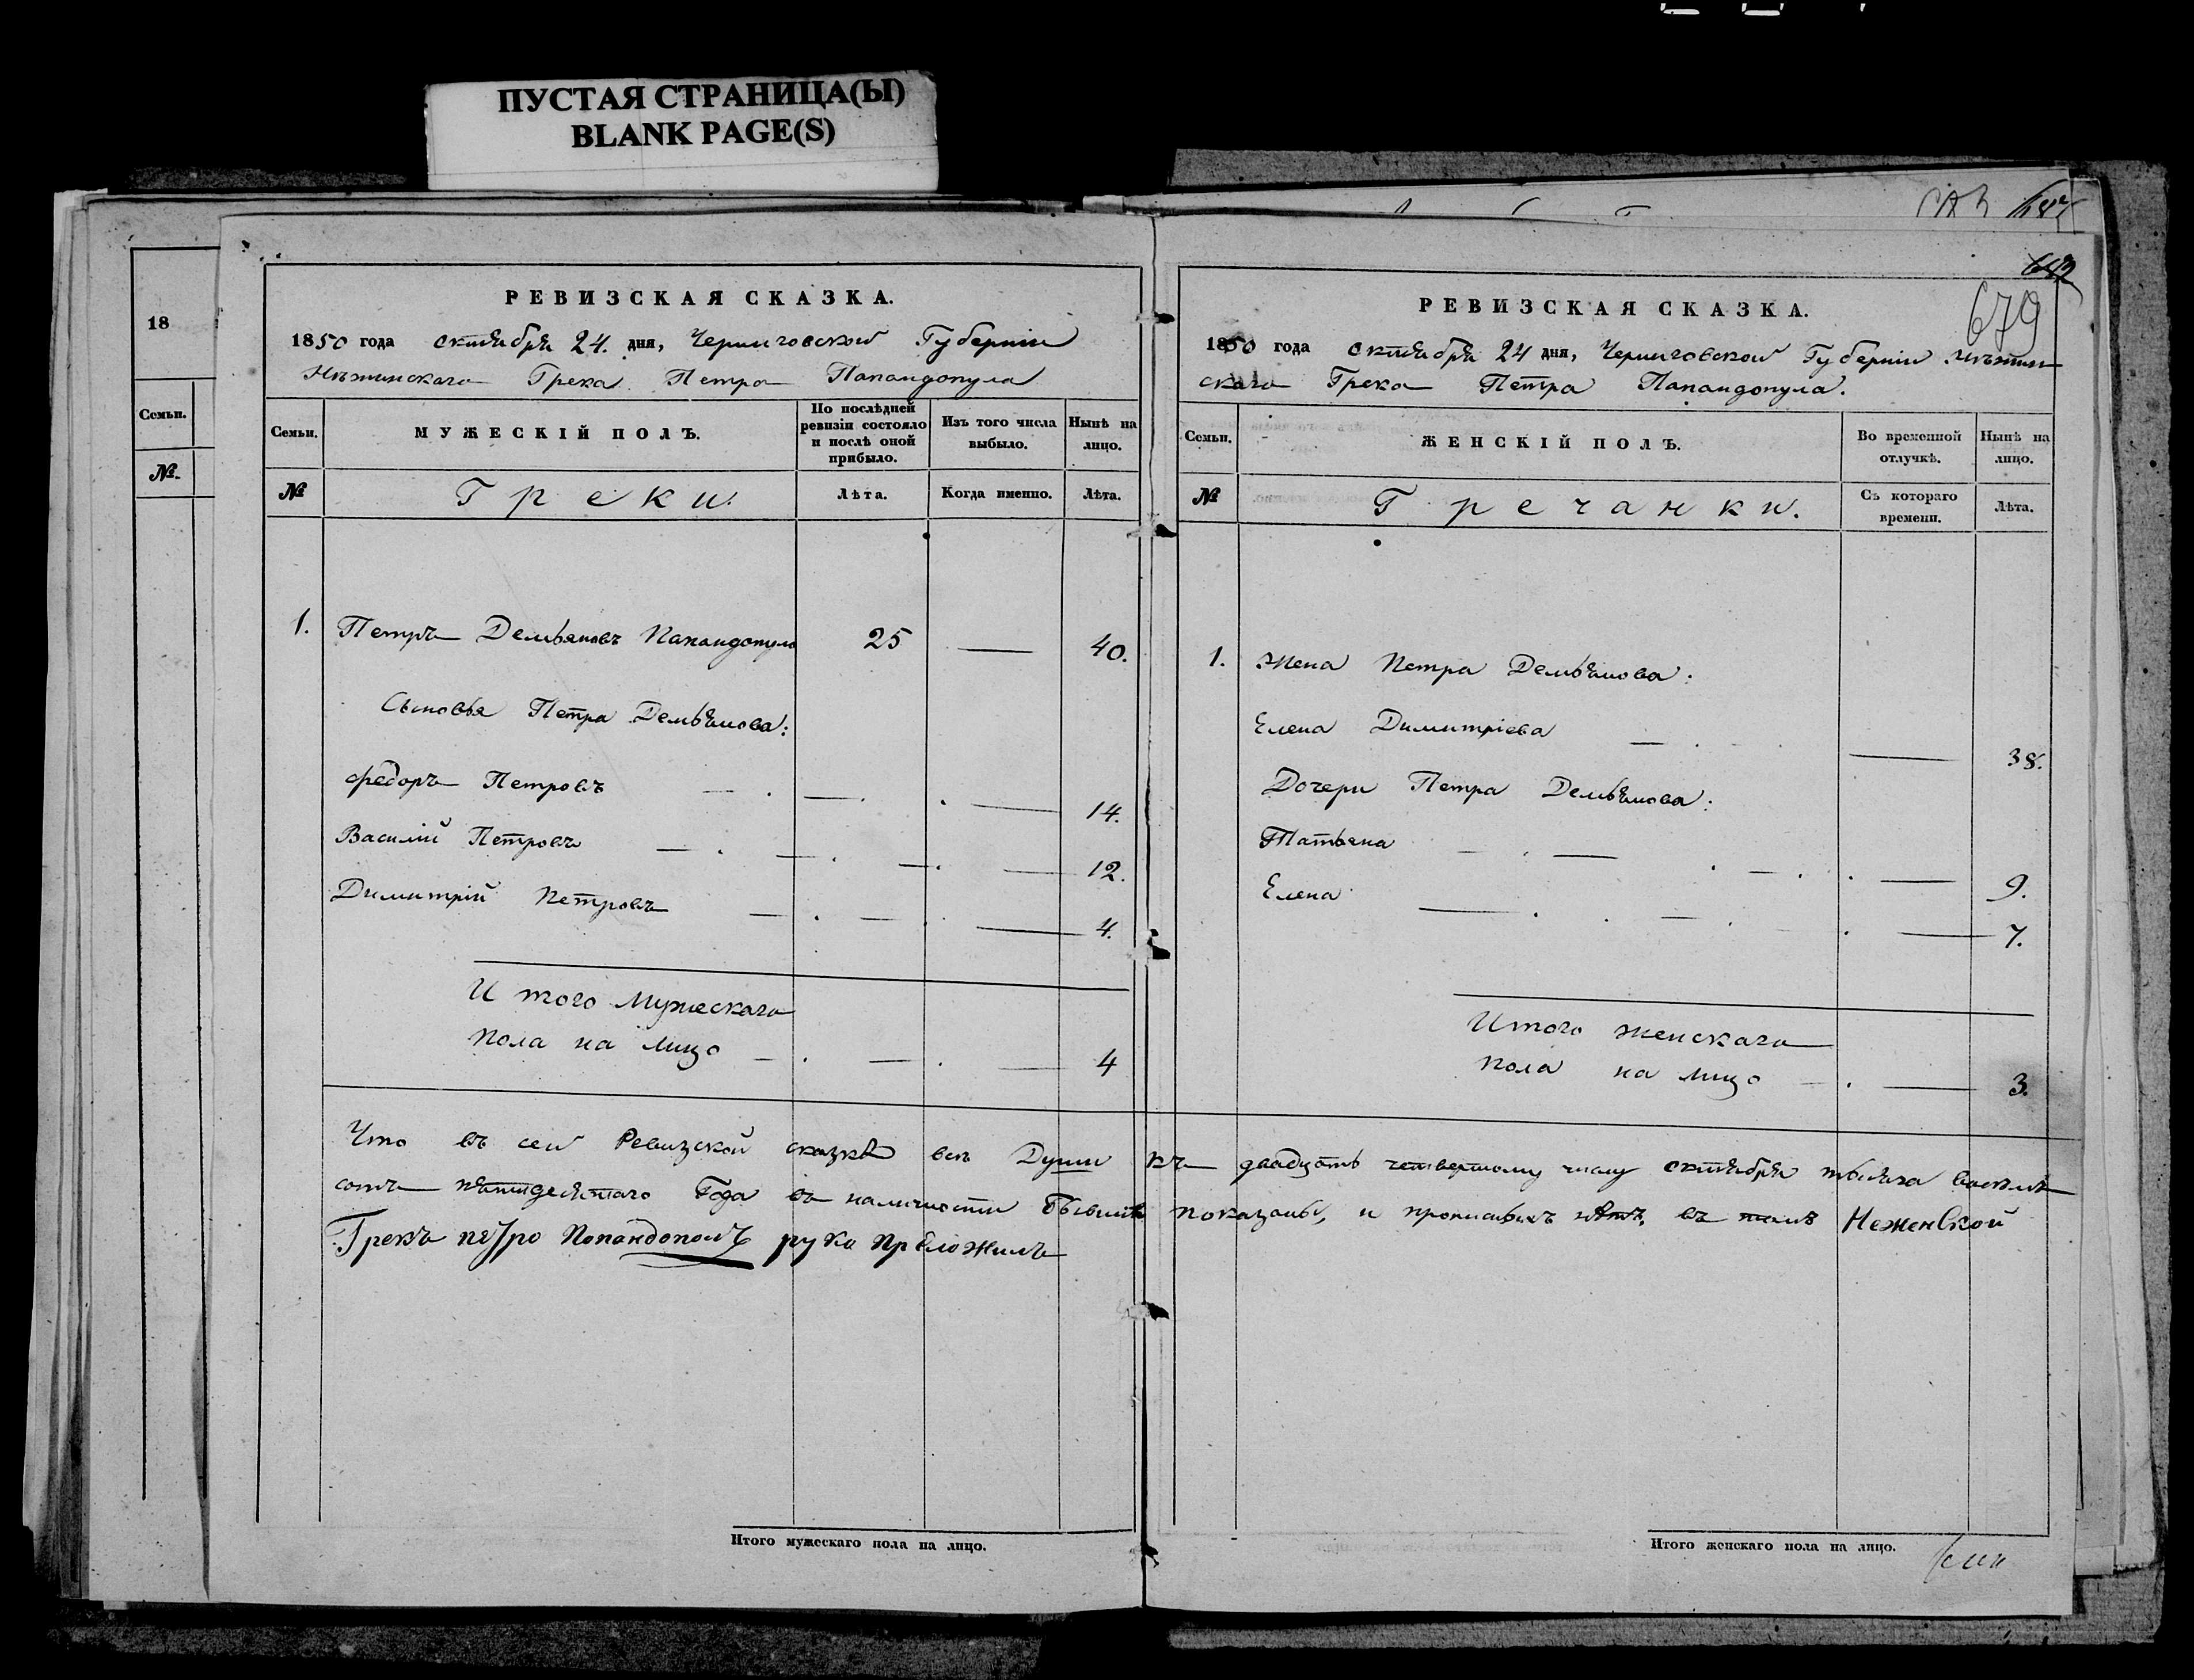 ПУСТАЯ СТРАНИЦА(Ы)
BLANK PAGE(S)
18
Семьи.
№.
РЕВИЗСКАЯ СКАЗКА.
1850 года октября 24. дня, Черниговской Губерніи
Нѣжинскаго Грека Петра Папандопула
Семьи.
МУЖЕСКІЙ ПОЛЪ.
По послѣдней ревизіи состояло и послѣ оной прибыло.
Изъ того числа выбыло.
Нынѣ на лицо.
№
Греки.
Лѣта.
Когда именно.
Лѣта.
1. Петръ Демьяновъ Папандопуло 25 — 40.
Сыновья Петра Демьянова:
Федоръ Петровъ — 14.
Василій Петровъ — 12.
Димитрій Петровъ — 4.
И того Мужескаго
пола на лицо — 4
679
РЕВИЗСКАЯ СКАЗКА.
1850 года октября 24 дня, Черниговской Губерніи Нѣжин
скаго Грека Петра Папандопула.
Семьи.
ЖЕНСКІЙ ПОЛЪ.
Во временной отлучкѣ.
Нынѣ на лицо.
№
Гречанки.
Съ котораго времени.
Лѣта.
1. Жена Петра Демьянова:
Елена Димитріева — 38.
Дочери Петра Демьянова:
Татьяна — 9.
Елена — 7.
Итого женскаго
пола на лицо — 3.
Что въ сей Ревизской сказкѣ всѣ Души къ двадцать четвертому числу октября тысяча восемь
сотъ пятидесятаго Года въ наличности бывшіе показаны, и прописныхъ нѣтъ, въ томъ Неженской
Грекъ петро Попандополъ рука приложилъ
Итого мужескаго пола на лицо.
Итого женскаго пола на лицо.